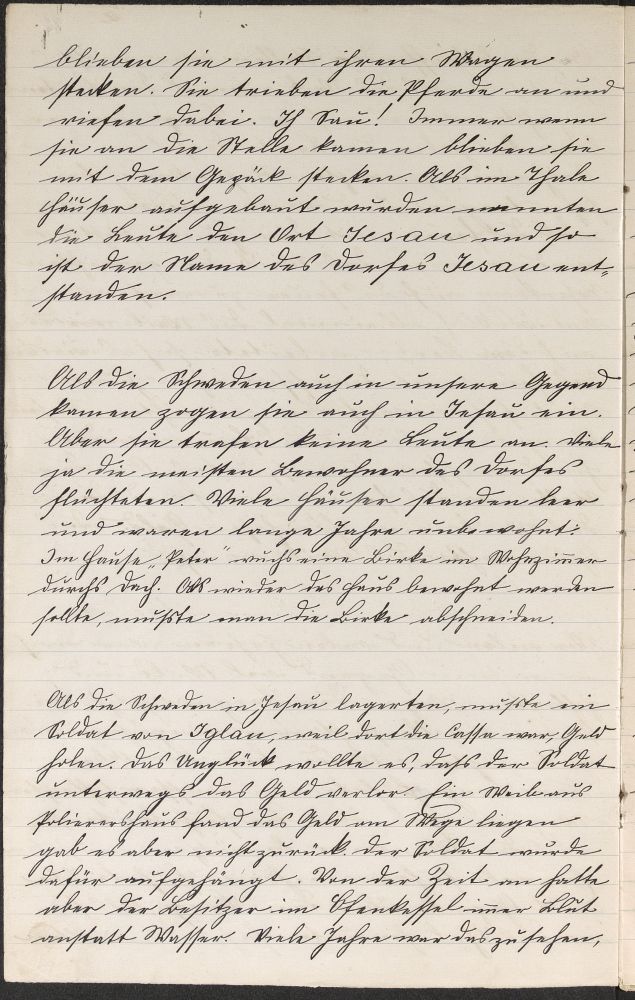 blieben sie mit ihren Wagen
stecken. Sie trieben die Pferde an und
riefen dabei. Jh Sau! Immer wenn
sie an die Stelle kamen blieben sie
mit dem Gepäck stecken. Als im Thale
Häuser aufgebaut wurden nannten
die Leute den Ort Jesau und so
ist der Name des Dorfes Jesau ent-
standen.
Als die Schweden auch in unsere Gegend
kamen zogen sie auch in Jesau ein.
Aber sie trafen keine Leute an. Viele
ja die meisten Bewohner des Dorfes
flüchteten. Viele Häuser standen leer
und waren lange Jahre unbewohnt.
Im Hause „Peter" wuchs eine Birke im Wohnzimmer
durchs Dach. Als wieder das Haus bewohnt werden
sollte, mußte man die Birke abschneiden.
Als die Schweden in Jesau lagerten, mußte ein
Soldat von Iglau, weil dort die Cassa war, Geld
holen. Das Unglück wollte es, daß der Soldat
unterwegs das Geld verlor. Ein Weib aus
Polierershaus fand das Geld am Wege liegen
gab es aber nicht zurück. Der Soldat wurde
dafür aufgehängt. Von der Zeit an hatte
aber der Besitzer im Ofenkessel immer Blut
anstatt Wasser. Viele Jahre war das zu sehen,